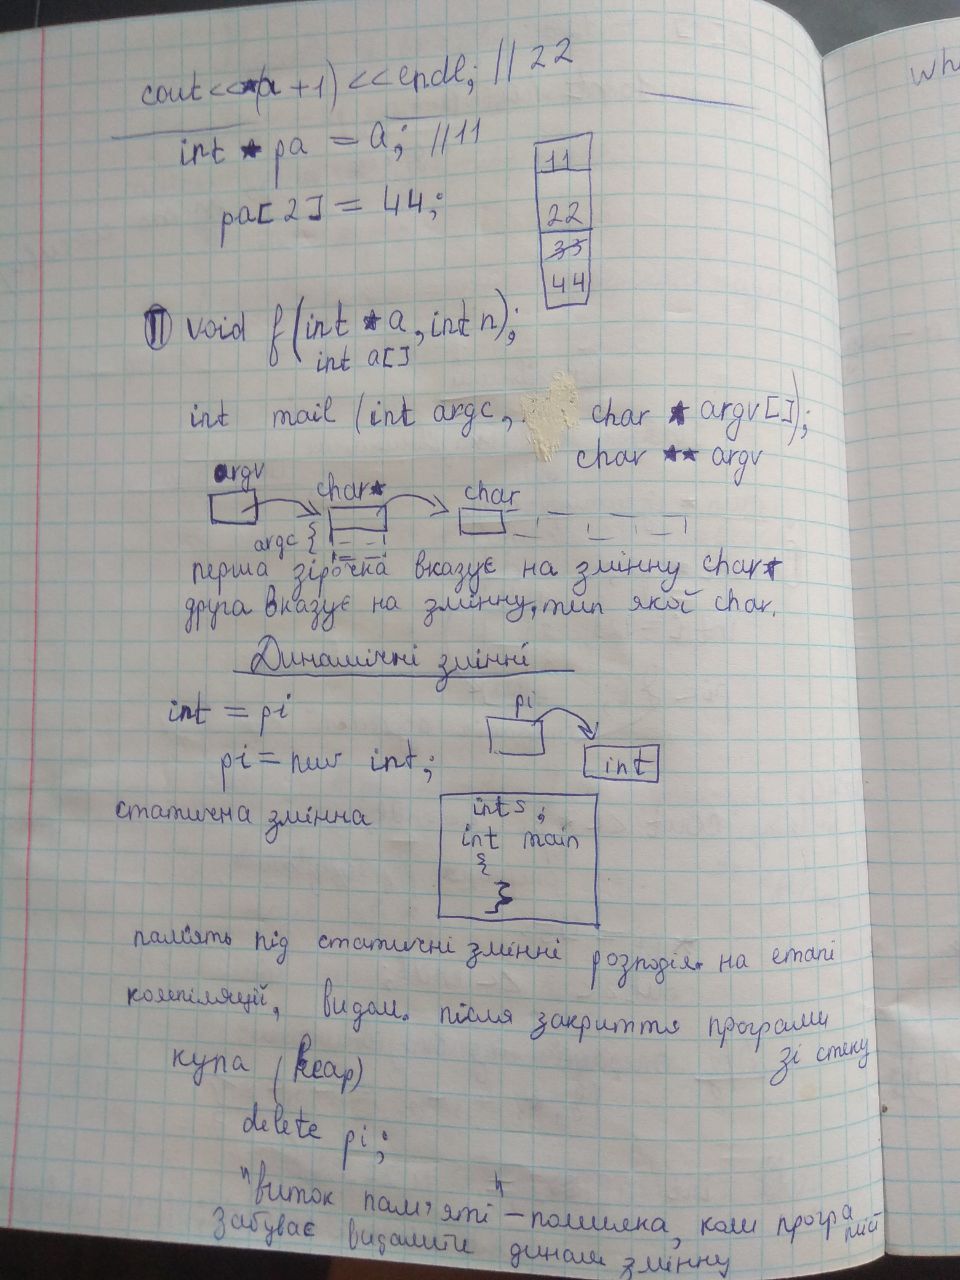 cout<<*(a+1)<<endl; //22
int * pa = a; //11
pa[2] = 44;
11
22
33
44
II void f(int * a, int n);
int a[]
int mail (int argc, char * argv[]);
char ** argv
argv
char* char
argc {
перша зірочка вказує на змінну char*
друга вказує на змінну, тип якої char.
Динамічні змінні
int = pi
pi
pi = new int;
int
статична змінна
int s;
int main
{
}
пам'ять під статичні змінні розподіл. на етапі
компіляції, видал. після закриття програми
зі стеку
купа (heap)
delete pi;
"виток пам'яті" – помилка, коли програміст
забуває видалити динам змінну
Whi